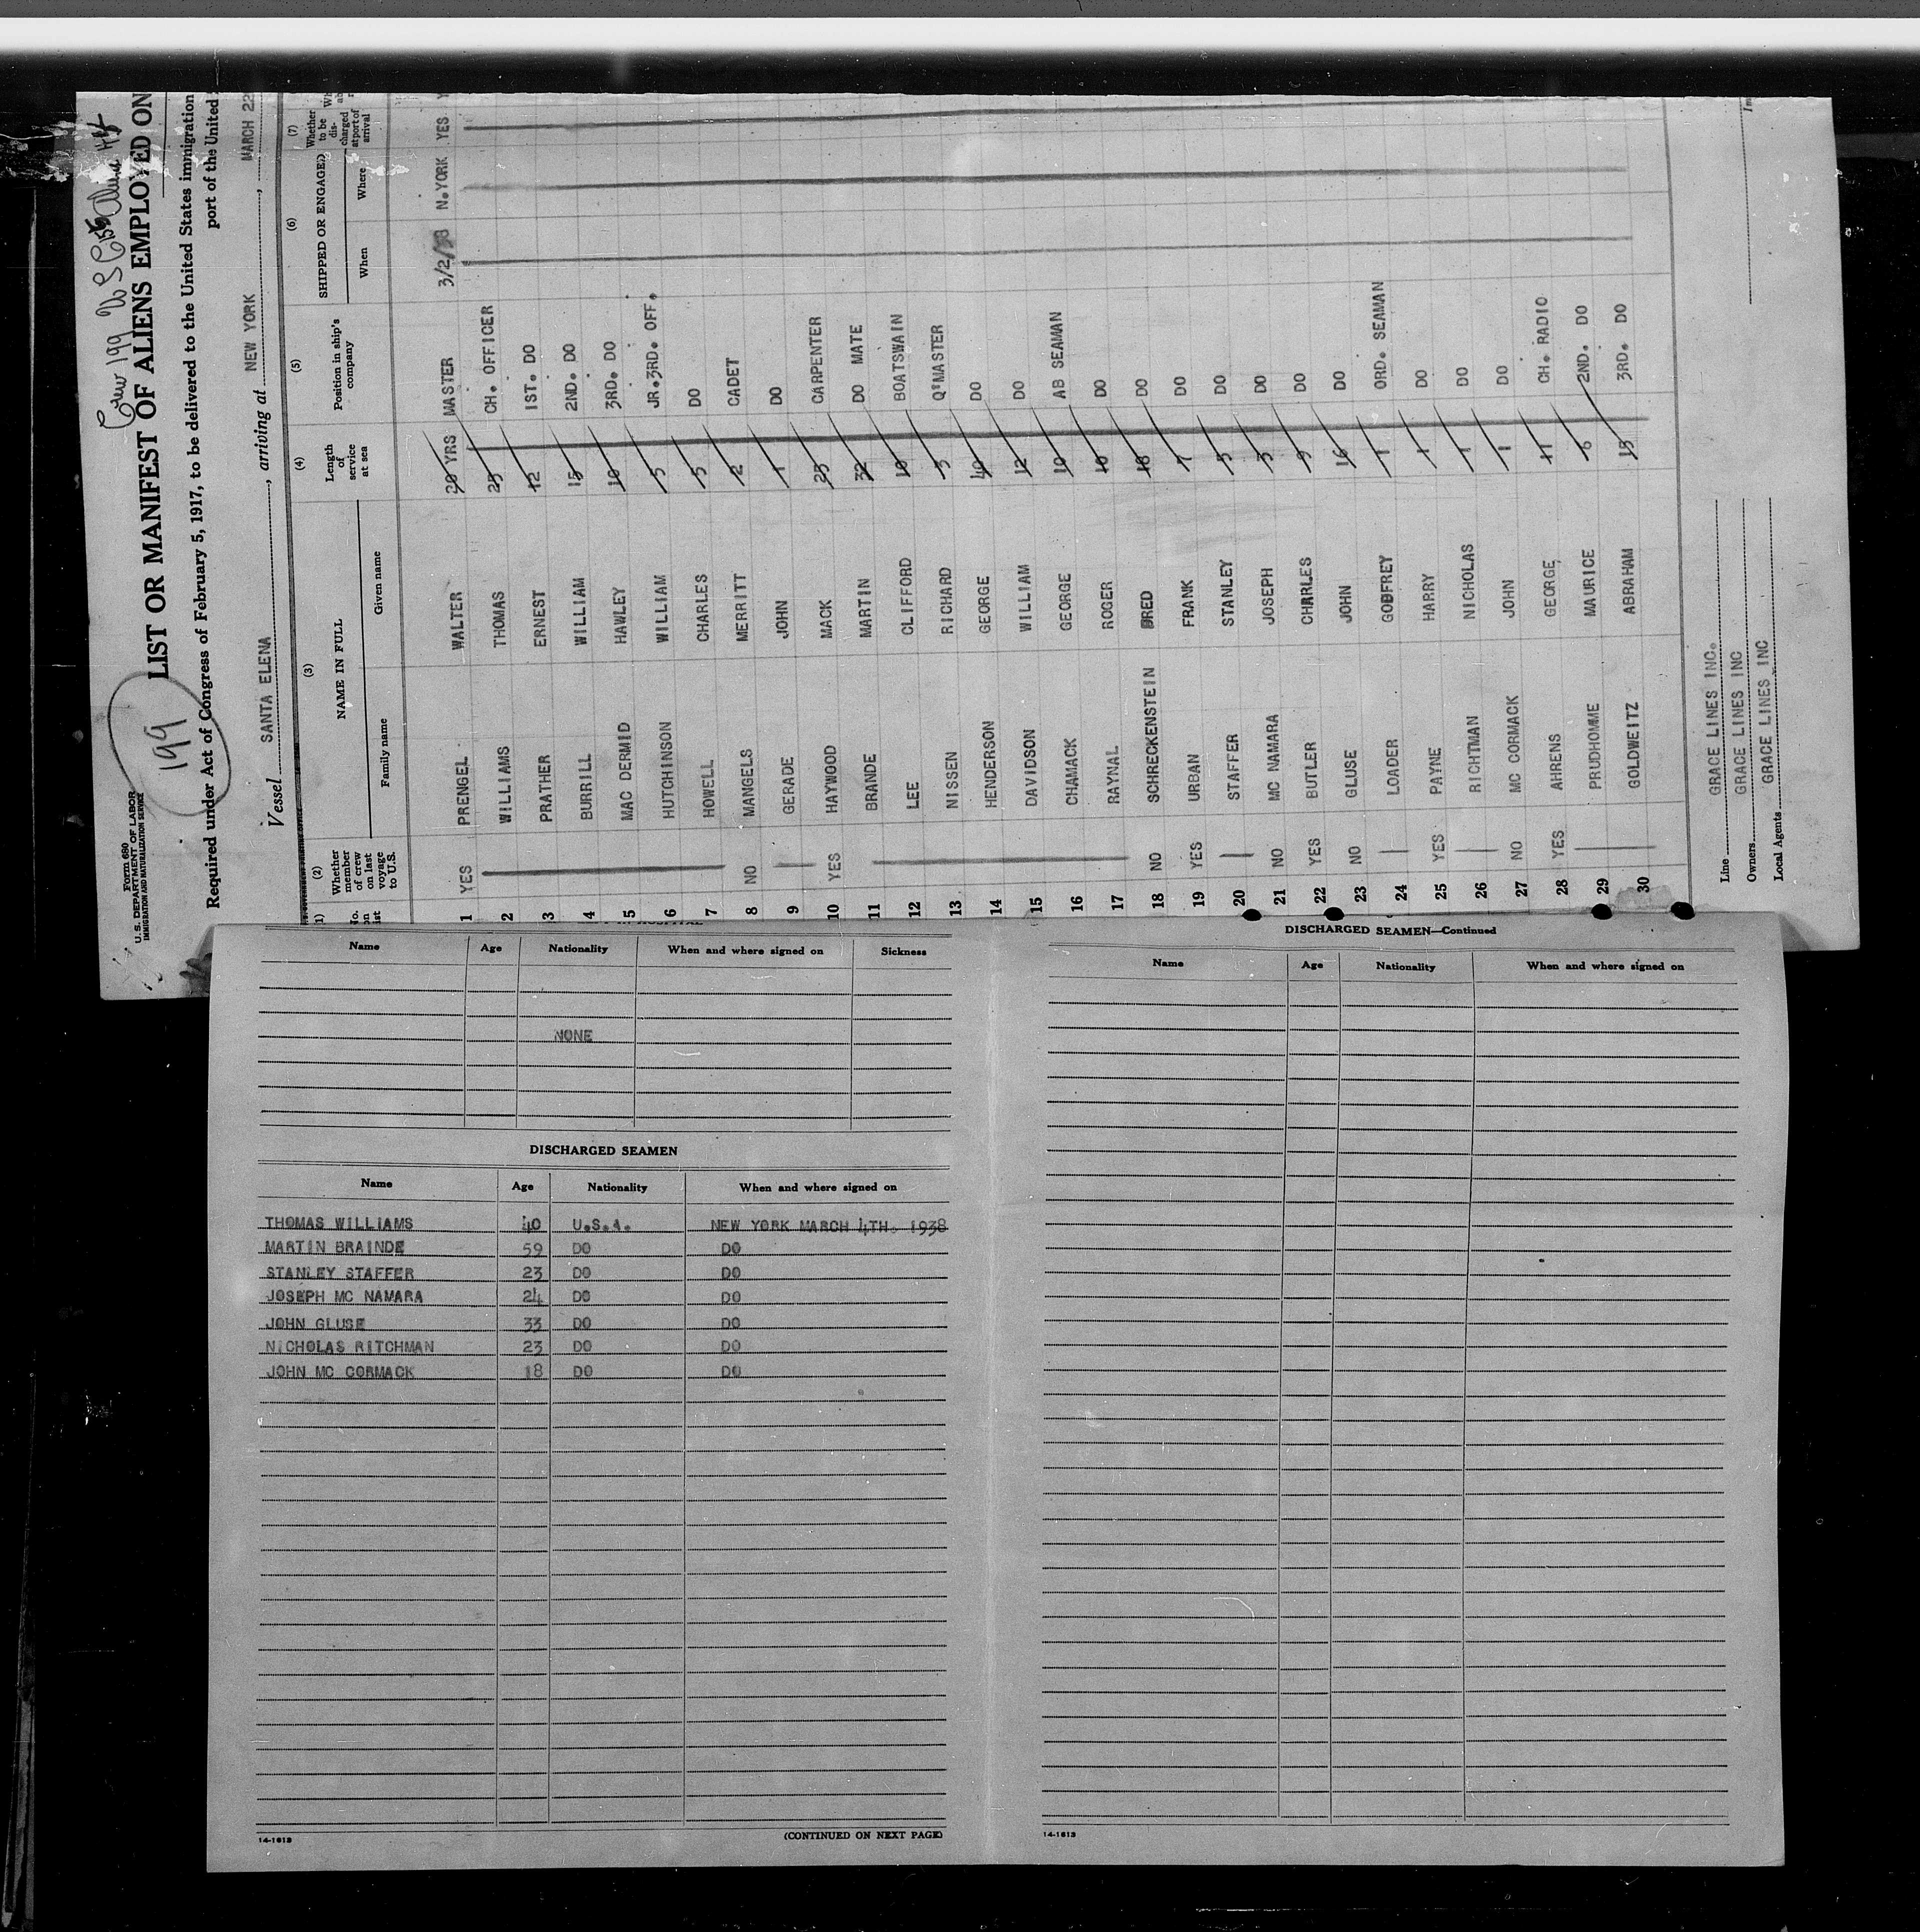 Form 680
U. S. DEPARTMENT OF LABOR
IMMIGRATION AND NATURALIZATION SERVICE
199
Crew 199
LIST OR MANIFEST OF ALIENS EMPLOYED ON
Required under Act of Congress of February 5, 1917, to be delivered to the United States immigration
port of the United
Vessel SANTA ELENA, arriving at NEW YORK, MARCH 22
(2) (3) (4) (5) (6) (7)
Whether member of crew on last voyage to U.S. NAME IN FULL Length of service at sea Position in ship's company SHIPPED OR ENGAGED Whether to be dis- charged at port of arrival
Family name Given name When Where
1 YES PRENGEL WALTER 20 YRS MASTER 3/2/38 N.YORK YES
2 WILLIAMS THOMAS 25 CH. OFFICER
3 PRATHER ERNEST 12 1ST. DO
4 BURRILL WILLIAM 15 2ND. DO
5 MAC DERMID HAWLEY 10 3RD. DO
6 HUTCHINSON WILLIAM 5 JR.3RD. OFF.
7 HOWELL CHARLES 5 DO
8 NO MANGELS MERRITT 2 CADET
9 GERADE JOHN 1 DO
10 YES HAYWOOD MACK 25 CARPENTER
11 BRANDE MARTIN 32 DO MATE
12 LEE CLIFFORD 10 BOATSWAIN
13 NISSEN RICHARD 5 Q'MASTER
14 HENDERSON GEORGE 40 DO
15 DAVIDSON WILLIAM 12 DO
16 CHAMACK GEORGE 10 AB SEAMAN
17 RAYNAL ROGER 10 DO
18 NO SCHRECKENSTEIN FRED 18 DO
19 YES URBAN FRANK 7 DO
20 STAFFER STANLEY 5 DO
21 NO MC NAMARA JOSEPH 3 DO
22 YES BUTLER CHARLES 9 DO
23 NO GLUSE JOHN 16 DO
24 LOADER GODFREY 1 ORD. SEAMAN
25 YES PAYNE HARRY 1 DO
26 RICHTMAN NICHOLAS 1 DO
27 NO MC CORMACK JOHN 1 DO
28 YES AHRENS GEORGE 11 CH. RADIO
29 PRUDHOMME MAURICE 6 2ND. DO
30 GOLDWEITZ ABRAHAM 15 3RD. DO
Line GRACE LINES INC.
Owners GRACE LINES INC
Local Agents GRACE LINES INC
Name Age Nationality When and where signed on Sickness
NONE
DISCHARGED SEAMEN
Name Age Nationality When and where signed on
THOMAS WILLIAMS 40 U.S.A. NEW YORK MARCH 4TH. 1938
MARTIN BRAINDE 59 DO DO
STANLEY STAFFER 23 DO DO
JOSEPH MC NAMARA 24 DO DO
JOHN GLUSE 33 DO DO
NICHOLAS RITCHMAN 23 DO DO
JOHN MC CORMACK 18 DO DO
14-1613 (CONTINUED ON NEXT PAGE)
DISCHARGED SEAMEN—Continued
Name Age Nationality When and where signed on
14-1613